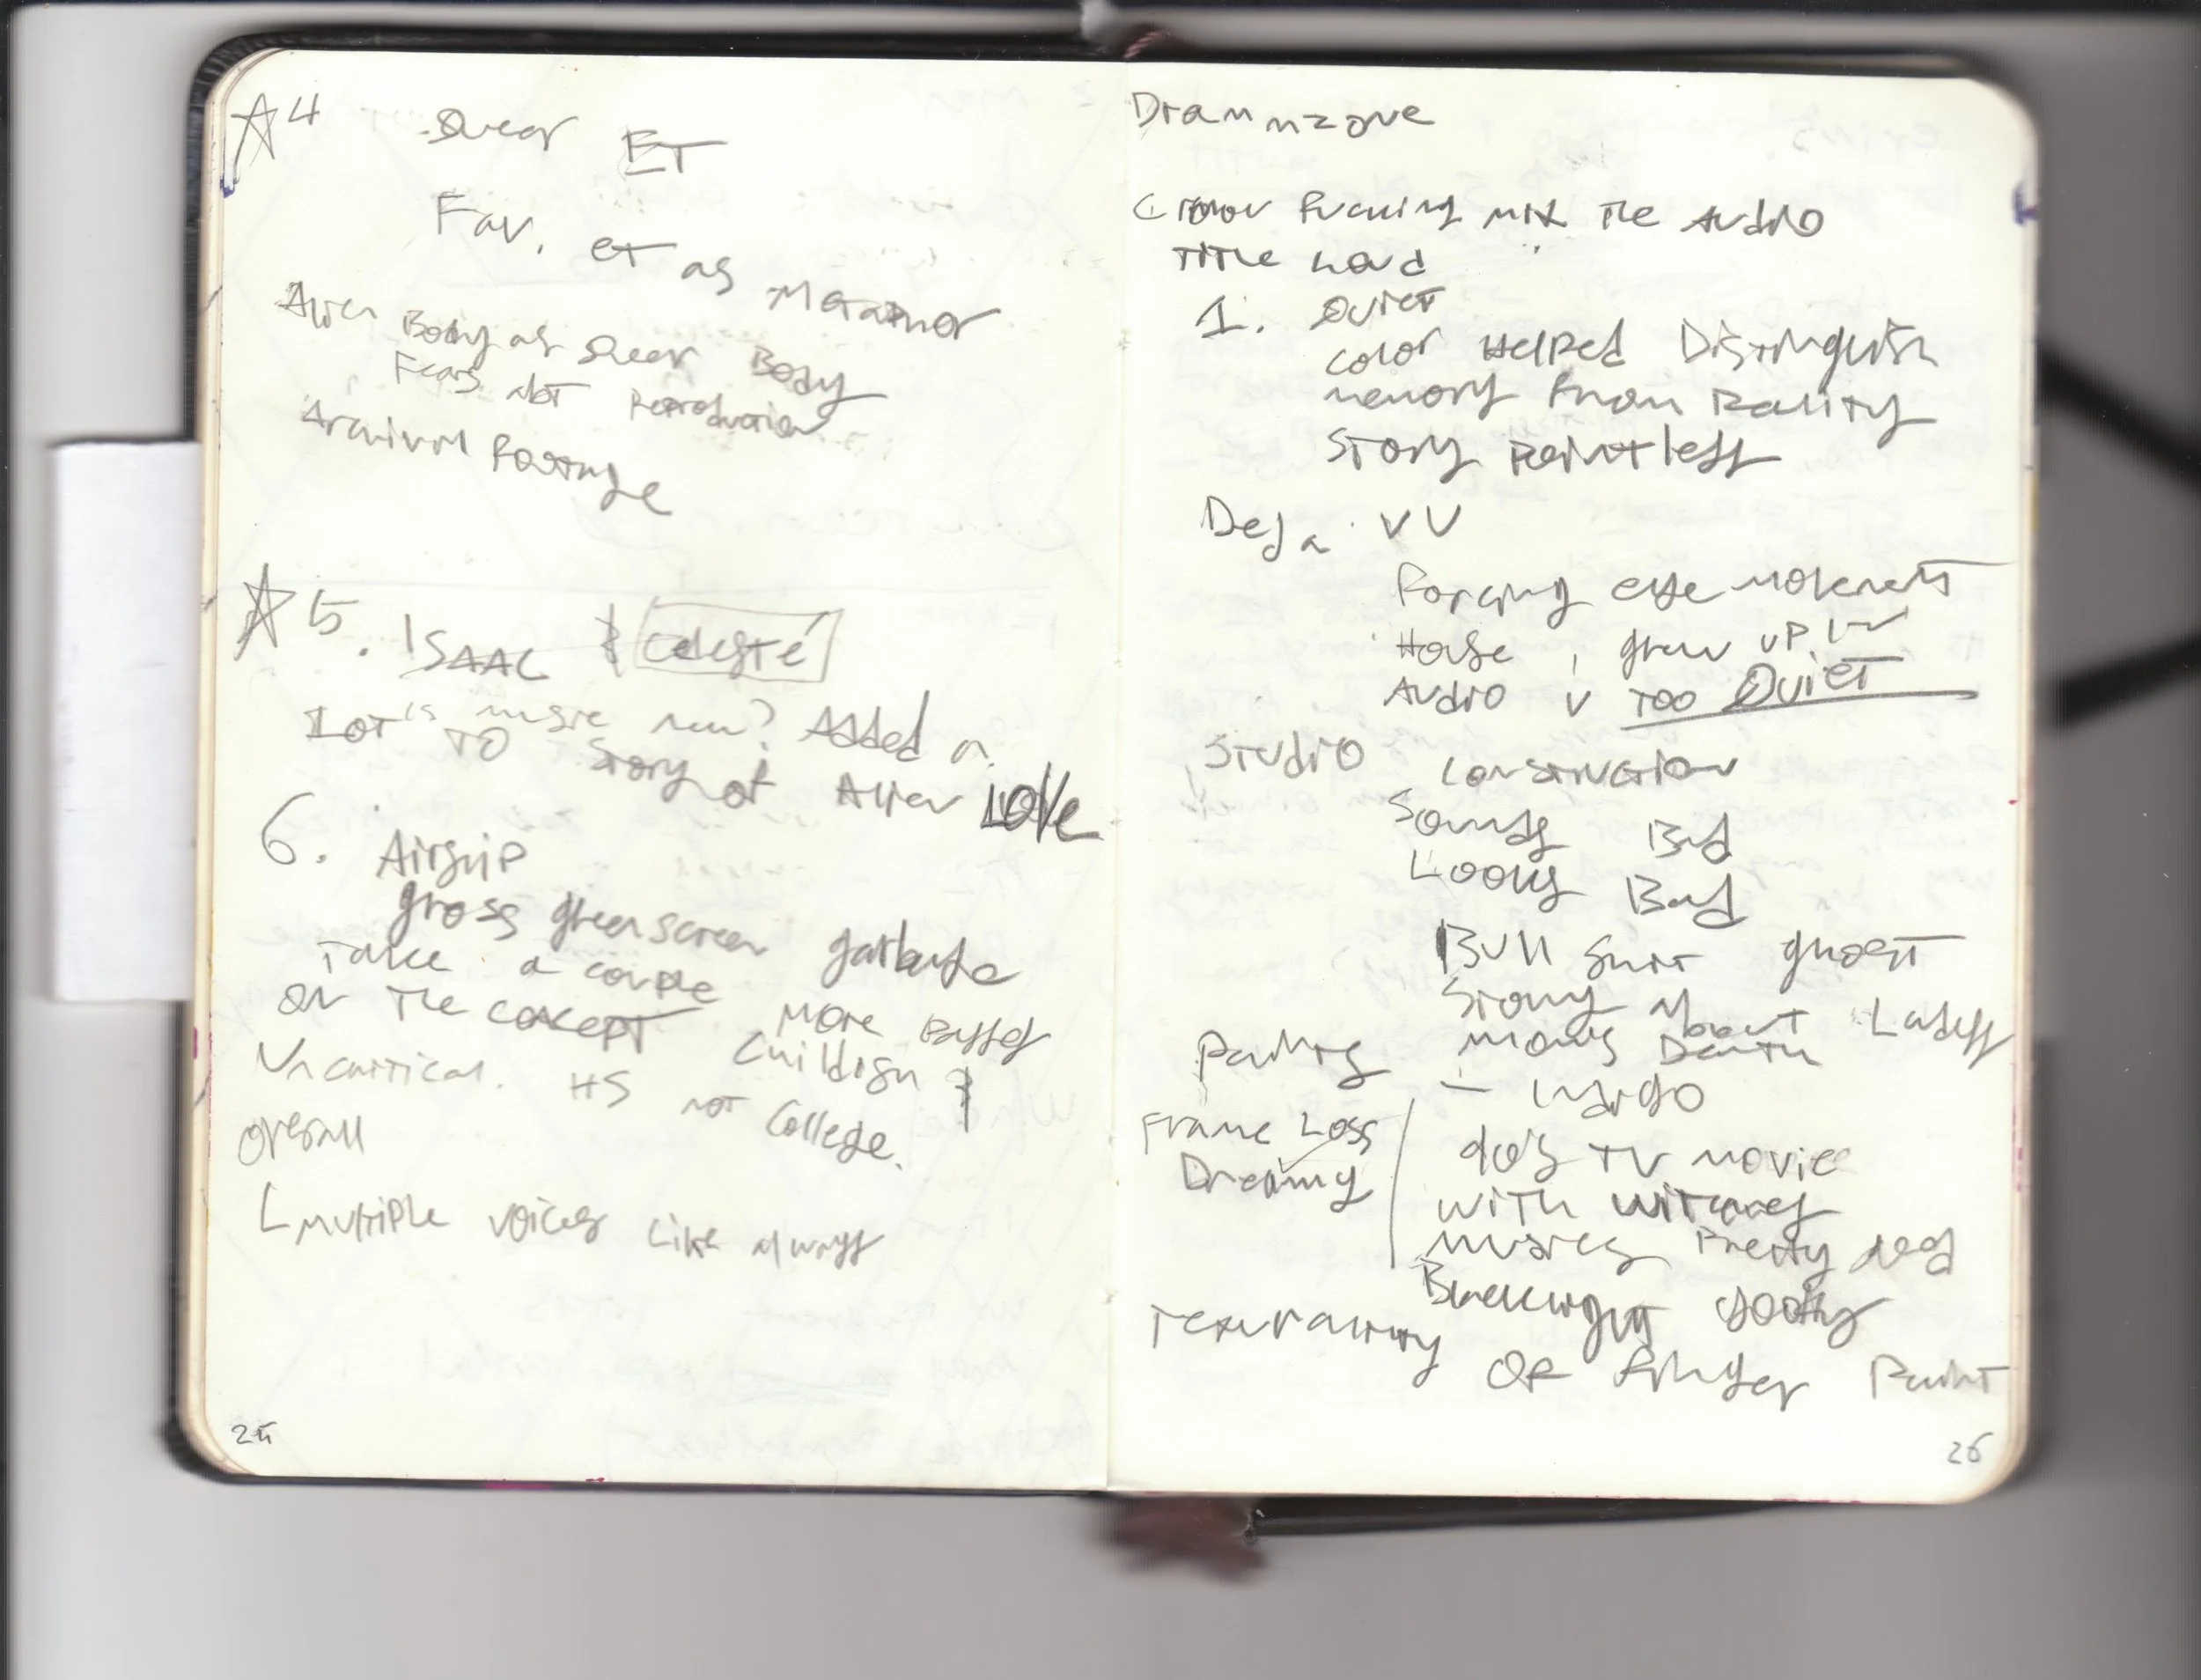 ☆4 Queer ET
Fav. ET as Metaphor
Alien Body as Queer Body
Fears Not Reproduction
Archival Footage
☆5. ISAAC & Celeste
is music new? Added a
Lot TO Story of Alien LOVE
6. Airship
gross greenscreen garbage
Take a couple more passes
on the concept
Uncritical. Childish &
HS not College.
Overall
multiple voices like always
25
Fucking mix the Audio
Title Loud
1. Quiet
Color Helped Distinguish
memory from Reality
Story pointless
Deja VU
Forcing eye movements
House I grew up in
Audio TOO QUIET
Studio Construction
Sounds Bad
Looks Bad
Bull Shit ghost
Story About Ladess
Moms Death
Indigo
Frame Loss
Dreamy
60's TV movie
with witches
Music's Pretty good
Blacklight
Temporality OF Finger Paint
26